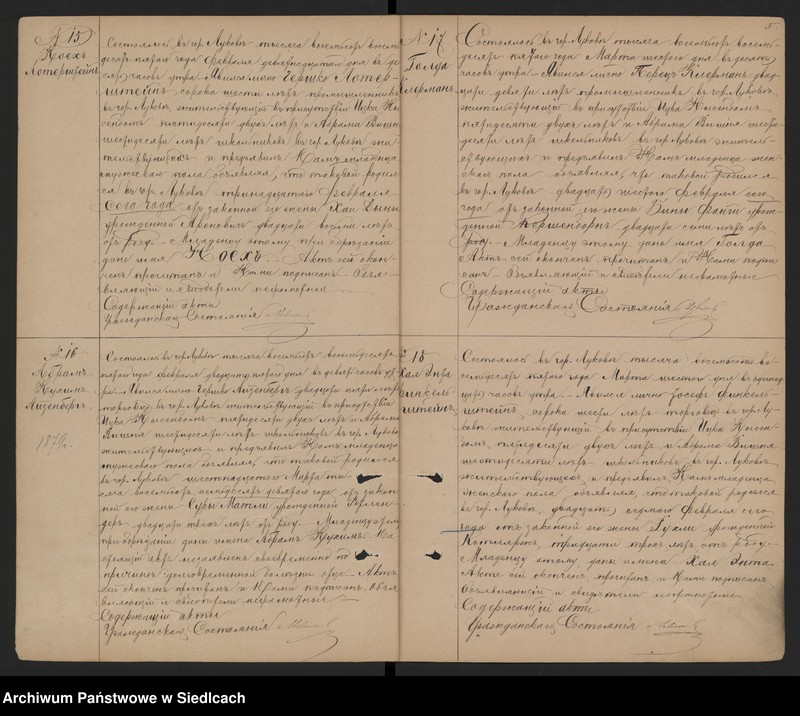 № 15
Ноехъ
Лотерштейнъ
Состоялось въ гор. Луковѣ тысяча восемьсотъ восемь
десятъ пятаго года Февраля девятнадцатаго дня въ де
часовъ утра. Явился лично Гершко Лотер-
штейнъ, сорока шести лѣтъ, промышленникъ
въ гор. Луковѣ жительствующій въ присутствіи Ицка
пятидесяти двухъ лѣтъ и Абрама Вишня
шестидесяти лѣтъ школьниковъ въ гор. Луковѣ жи-
тельствующихъ и предъявилъ Намъ младенца
мужескаго пола объявляя, что таковой родил-
ся въ гор. Луковѣ тринадцатаго Февраля
сего года отъ законной его жены Хаи
урожденной Ароновичъ двадцати восьми лѣтъ
отъ роду. - Младенцу этому при обрѣзаніи
дано имя Ноехъ. Актъ сей окон-
ченъ прочитанъ и Нами подписанъ. Объя-
вляющій и свидѣтели неграмотные
Содержащій акты
Гражданскаго Состоянія
№ 16
Абрамъ
Нухимъ
Айзенбергъ
1879г.
Состоялось въ гор. Луковѣ тысяча восемьсотъ восемьдесятъ
пятаго года Февраля двадцать пятаго дня въ девять часовъ ут-
ра. Явился лично Гершко Айзенбергъ двадцати пяти лѣтъ
торговецъ въ гор. Луковѣ жительствующій въ присутствіи
Ицка пятидесяти двухъ лѣтъ и Абрама
Вишня шестидесяти лѣтъ школьниковъ въ гор. Луковѣ
жительствующихъ и предъявилъ Намъ младенца
мужескаго пола объявляя, что таковой родился
въ гор. Луковѣ шестнадцатаго Марта ты-
сяча восемьсотъ семьдесятъ девятаго года отъ закон
ной его жены Суры Матли урожденной
двадцати трехъ лѣтъ отъ роду. - Младенцу этому
при обрѣзаніи даны имена Абрамъ Нухимъ. На
стоящій актъ незаявленъ своевременно по
причинѣ долговременной болѣзни отца. Актъ
сей оконченъ прочитанъ и Нами подписанъ. Объя
вляющій и свидѣтели неграмотные
Содержащій акты
Гражданскаго Состоянія
5.
№ 17
Голда
Клерманъ
Состоялось въ гор. Луковѣ тысяча восемьсотъ восемь-
десятъ пятаго года Марта шестаго дня въ десять
часовъ утра. Явился лично Перецъ Клерманъ двад-
цати девяти лѣтъ промышленникъ въ гор. Луковѣ
жительствующій въ присутствіи Ицка
пятидесяти двухъ лѣтъ и Абрама Вишня шести-
десяти лѣтъ школьниковъ въ гор. Луковѣ житель-
ствующихъ и предъявилъ Намъ младенца жен-
скаго пола объявляя, что таковой родился
въ гор. Луковѣ двадцать шестаго Февраля сего
года отъ законной его жены Вины Файги урож-
денной двадцати семи лѣтъ отъ
роду. - Младенцу этому дано имя Голда
Актъ сей оконченъ прочитанъ и Нами подпи-
санъ. Объявляющій и свидѣтели неграмотные
Содержащій акты
Гражданскаго Состоянія
№ 18
Хая Энта
Финкель
штейнъ
Состоялось въ гор. Луковѣ тысяча восемьсотъ во-
семьдесятъ пятаго года Марта шестаго дня въ одинад-
цать часовъ утра. Явился лично Іосефъ Финкель-
штейнъ, сорока шести лѣтъ торговецъ въ гор. Лу-
ковѣ жительствующій въ присутствіи Ицка
пятидесяти двухъ лѣтъ и Абрама Вишня
шестидесяти лѣтъ школьниковъ въ гор. Луковѣ
жительствующихъ и предъявилъ Намъ младенца
женскаго пола, объявляя, что таковой родился
въ гор. Луковѣ двадцать седьмаго Февраля сего
года отъ законной его жены Рухли урожденной
тридцати трехъ лѣтъ отъ роду -
Младенцу этому даны имена Хая Энта.
Актъ сей оконченъ прочитанъ и Нами подписанъ
Объявляющій и свидѣтели неграмотные
Содержащій акты
Гражданскаго Состоянія
Archiwum Państwowe w Siedlcach